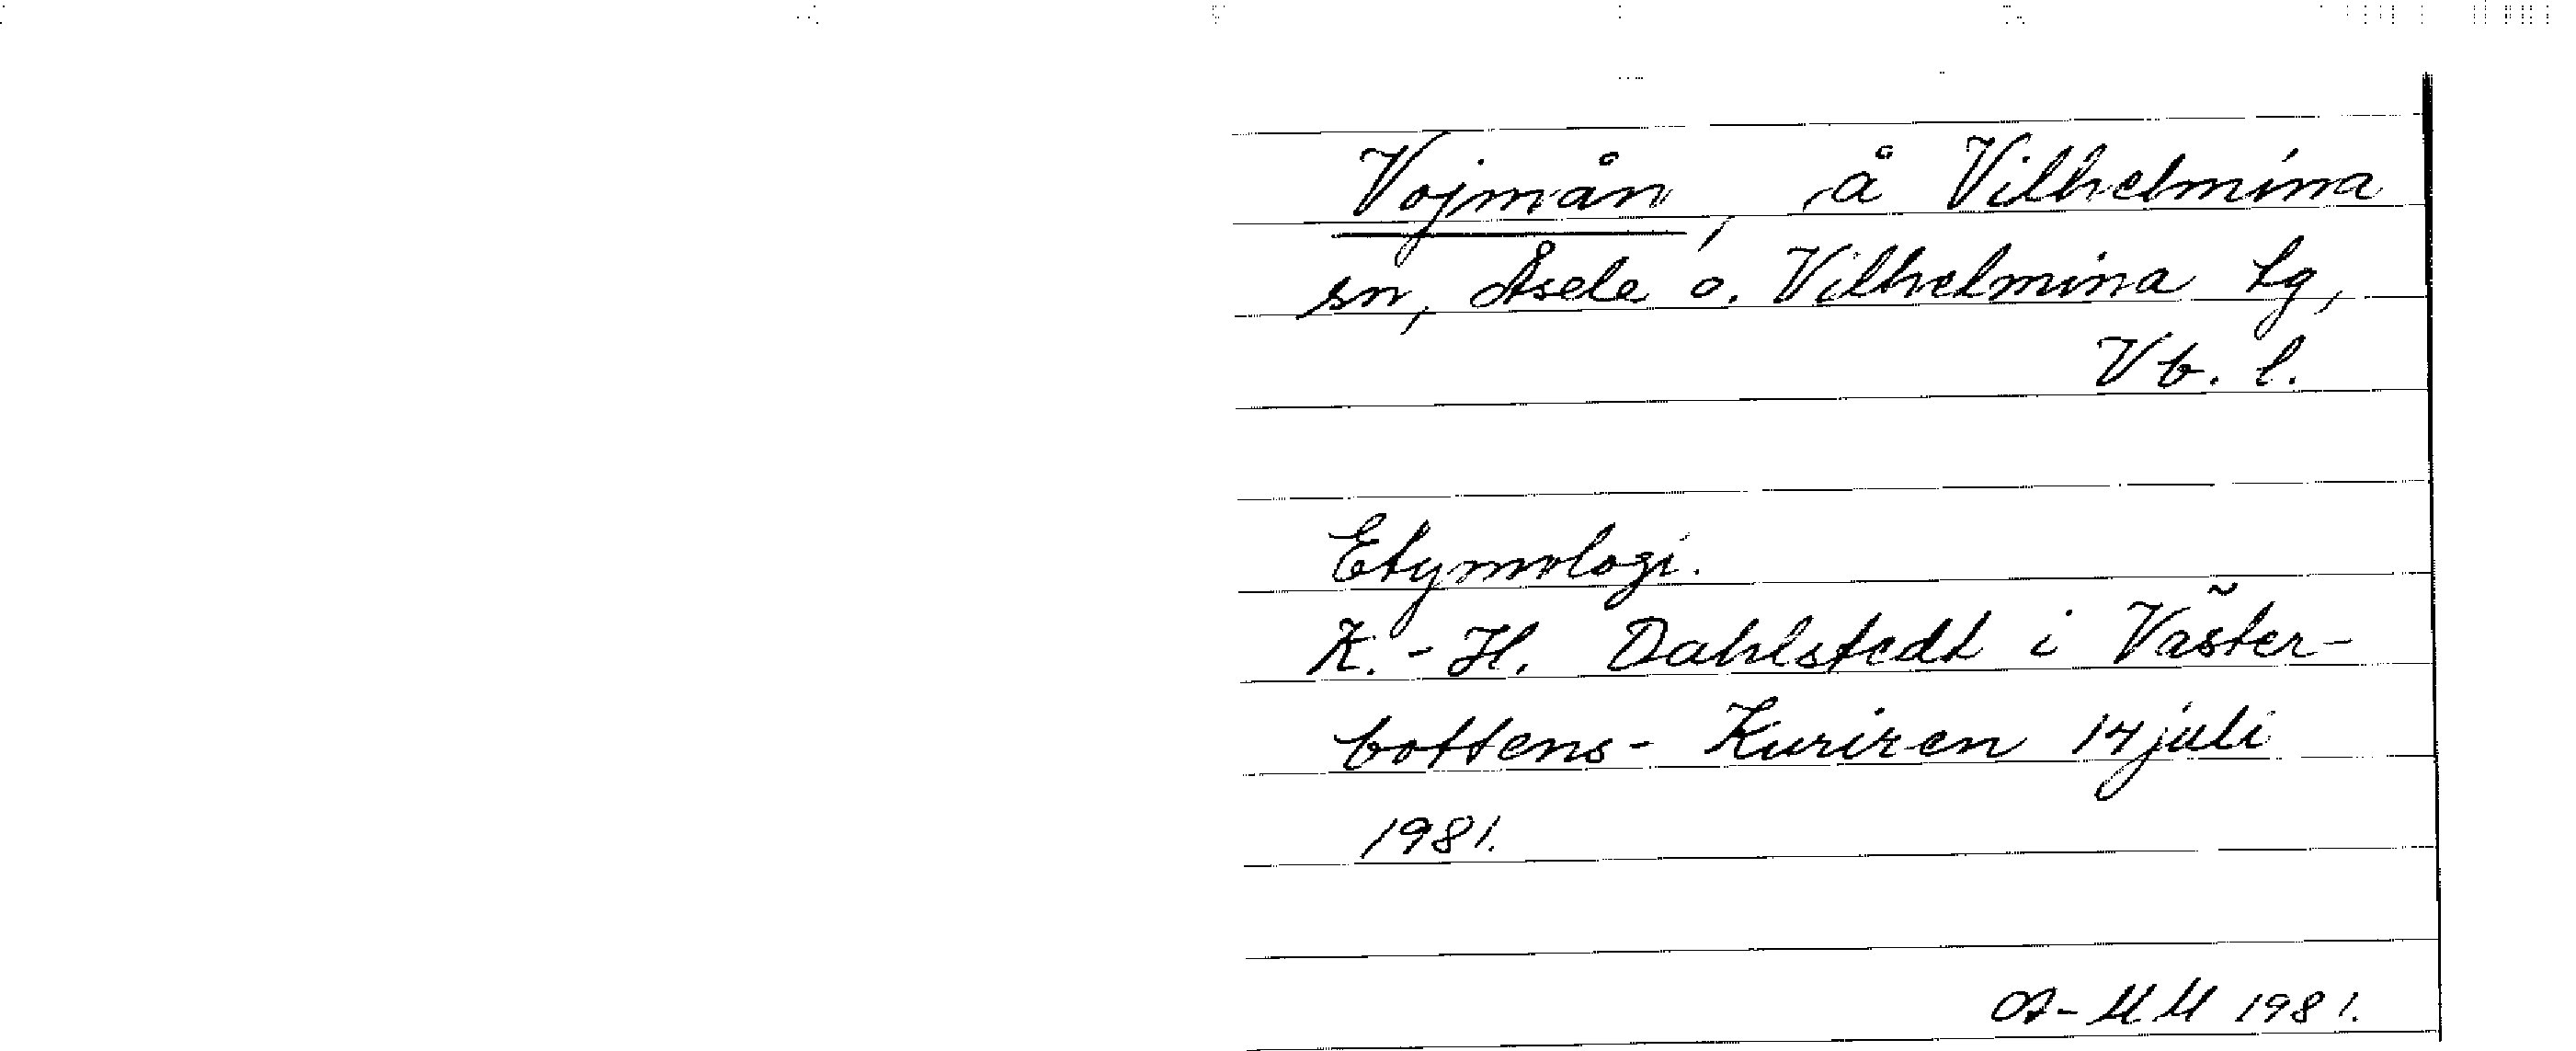 Vojmån, å Vilhelmina
sn, Åsele o. Vilhelmina lg,
Vb. l.
Etymologi.
K.-H. Dahlstedt i Väster-
bottens-Kuriren 14 juli
1981.
A-MM 1981.